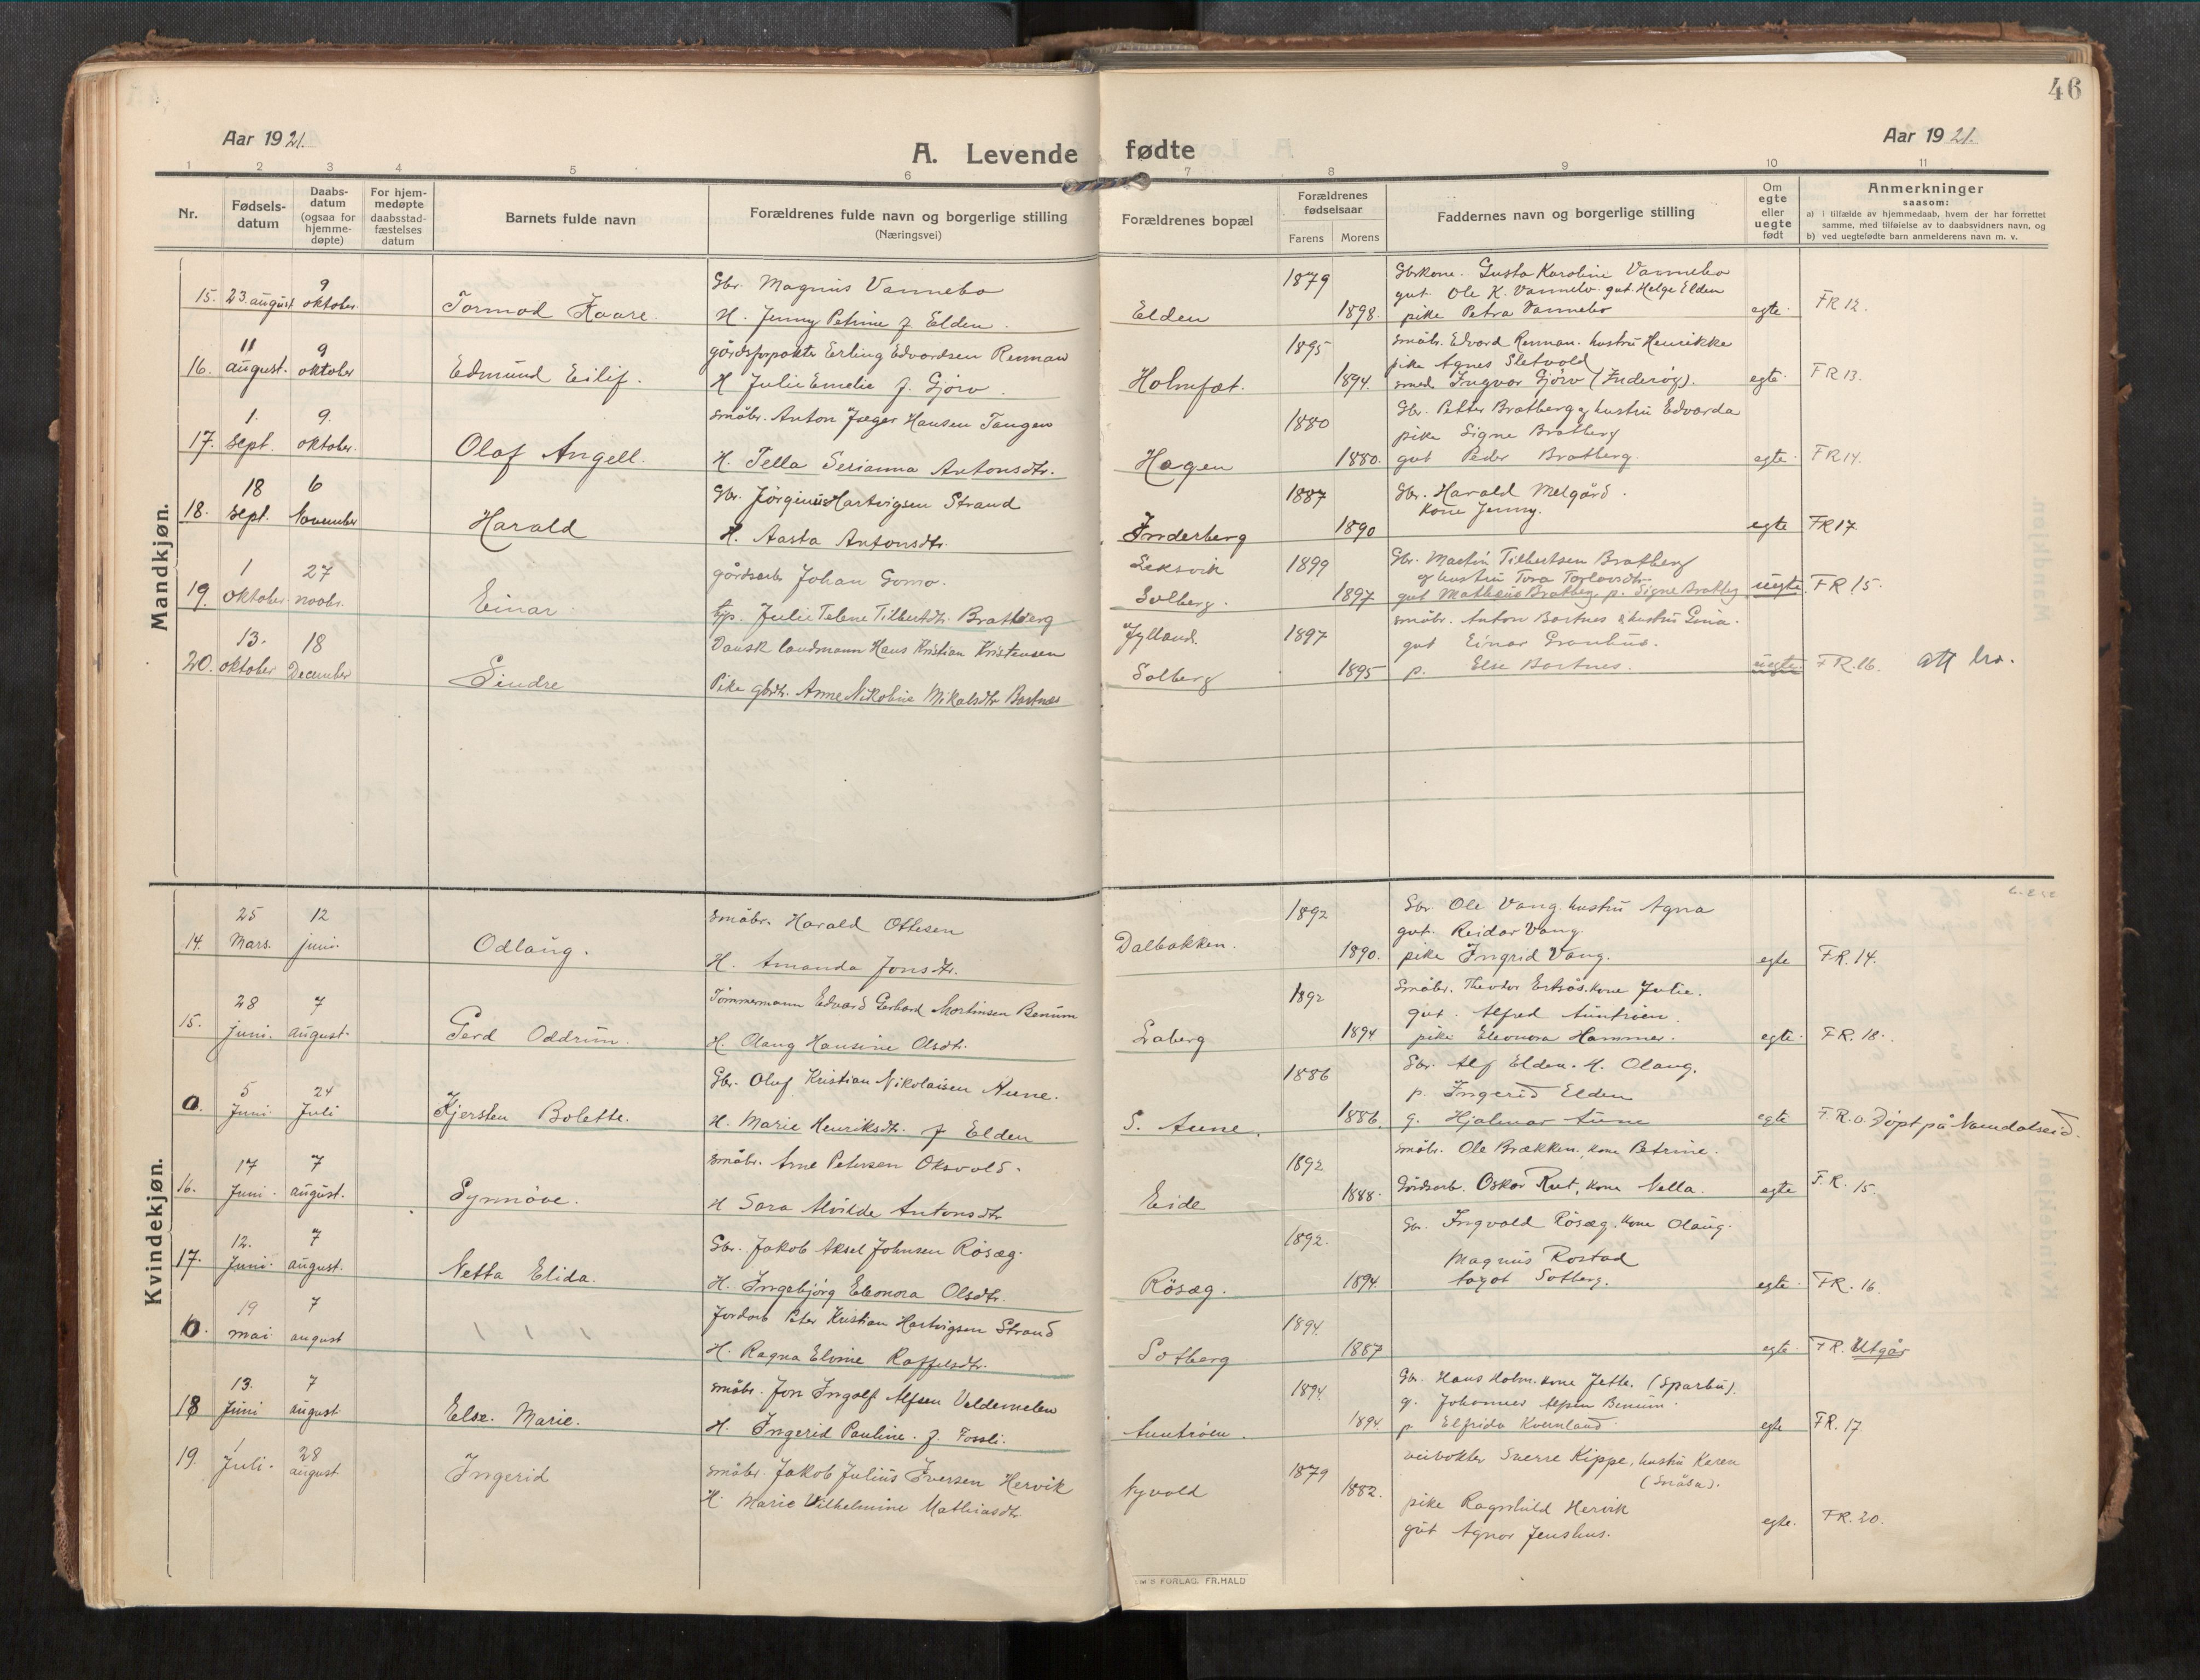 46
Aar 1921.
A. Levende fødte
Aar 1921.
1 2 3 4 5 6 7 8 9 10 11
Nr.
Fødsels-
datum
Daabs-
datum
(ogsaa for
hjemme-
døpte)
For hjem-
medøpte
daabsstad-
fæstelses
datum
Barnets fulde navn
Forældrenes fulde navn og borgerlige stilling
(Næringsvei)
Forældrenes bopæl
Forældrenes
fødselsaar
Farens Morens
Faddernes navn og borgerlige stilling
Om
egte
eller
uegte
født
Anmerkninger
saasom:
a) i tilfælde av hjemmedaab, hvem der har forrettet
samme, med tilføielse av to daabsvidners navn, og
b) ved uegtefødte barn anmelderens navn m. v.
Mandkjøn.
15. 23. august 9 oktober. Tormod Kaare.
Gbr. Magnus Vannebo
H. Jenny Petrine f. Elden.
Elden 1879 1898.
Gbrkone. Gusta Karoline Vannebo
gut Ole K. Vannebo. gut. Helge Elden
pike Petra Vannebo
egte. FR 12.
16. 11 august. 9 oktober Edmund Eilif.
gårdsforpakter Erling Edvardsen Renman
H Julie Emelie f. Gjörv.
Holmfæt. 1895 1894.
småbr. Edvard Renman. hustru Henrikke
pike Agnes Sletvold
smed Ingvar Gjörv (Inderøy).
egte. FR 13.
17. 1. sept. 9. oktober. Olaf Angell.
småbr. Anton Jæger Hansen Tangen
H. Pella Serianna Antonsdtr.
Hagen 1880 1880.
Gbr. Petter Bratberg og hustru Edvarda
pike Signe Bratberg
gut Peder Bratberg.
egte. FR 14.
18. 18 sept. 6 November Harald
Gbr. Jörginus Hartvigsen Strand
H. Aasta Antonsdtr.
Inderberg 1887 1890
Gbr. Harald Melgård.
kone Jenny.
egte FR 17.
19. 1 oktober. 27 novbr. Einar
gårdsarb. Johan Gomo.
tjp. Julie Telene Tilbertdtr. Bratberg
Leksvik
Solberg. 1899 1897
Gbr. Martin Tilbertsen Bratberg
og hustru Tora
gut Matheus Bratberg p. Signe Bratberg
uegte. FR 15.
20. 13. oktober 18 December Sindre
Dansk landmann Hans Kristian Kristensen
Pike gbdtr. Anne Nikoline Mikalsdtr Bartnes
Jylland.
Solberg 1897 1895
småbr. Anton Bartnes & hustru Gina.
gut Einar Granhus.
p. Else Bartnes.
uegte. FR. 16. att
Kvindekjøn.
14. 25 Mars. 12 juni. Odlaug.
småbr. Harald Ottesen
H. Amanda Jonsdtr.
Dalbakken. 1892 1890.
Gbr. Ole Vang. hustru Agna
gut. Reidar Vang.
pike Ingrid Vang.
egte FR. 14.
15. 28 juni. 7 august. Gerd Oddrun.
Tömmermann Edvard Gerhard Martinsen Benum
H. Olaug Hansine Olsdtr.
Laberg 1892 1894
Småbr. Theodor kone Julie.
gut. Alfred Auntröen.
pike Eleonora Hammer.
egte. FR. 18.
0. 5 Juni. 24 Juli Kjersten Bolette.
Gbr. Oluf Kristian Nikolaisen Aune.
H. Marie Henriksdtr. f Elden
S. Aune. 1886 1886.
Gbr. Alf Elden. H. Olaug.
p. Ingerid Elden
g. Hjalmar Aune
egte F.R. 0. Döpt på Namdalseid.
16. 17 Juni. 7 august. Synnöve.
småbr. Arne Petersen Oksvold.
H Sara Alvilde Antonsdtr
Eide 1892 1888.
småbr. Ole Brækken, kone Petrine.
Gårdsarb. Oskar Rut, kone Nella.
egte F.R. 15.
17. 12. Juni. 7 august. Netta Elida.
Gbr. Jakob Aksel Johnsen Rösæg.
H. Ingebjörg Eleonora Olsdtr.
Rösæg. 1892. 1894.
Gbr. Ingvald Rösæg. kone Olaug.
Magnus Rostad
Solberg.
egte. FR. 16.
0. 19 mai 7 august
Jordarb Peter Kristian Hartvigsen Strand
H. Ragna Elvine Raffelsdtr.
Solberg 1894. 1887
egte. FR. Utgår
18 13. Juni 7 august. Else. Marie.
småbr. Jon Ingolf Alfsen Veldemelen
H. Ingerid Pauline. f. Fossli.
Auntröen. 1894. 1894.
Gbr. Hans Holm. kone Jette. (Sparbu).
g. Johannes Alfsen Benum.
p. Elfrida Kvernland
egte FR. 17.
19. 1 Juli. 28 august Ingerid
småbr. Jakob Julius Iversen Hervik
H. Marie Vilhelmine Mathiasdtr.
Nyvold 1879 1882.
veivokter Sverre Kippe, hustru Karen
(Snåsa).
pike Ragnhild Hervik
gut Agnar Jenshus.
egte. FR. 20.
FORLAG. FR. HALD